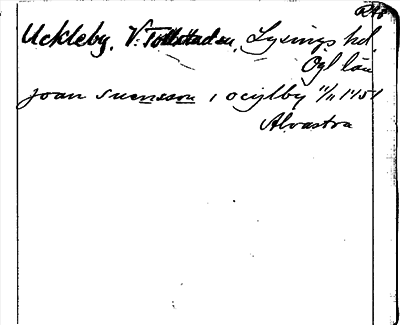 Uckleby, V. Tollstad sn, Lysings hd,
Ögl län
joan suensson i ocylby 11/11 1451
Alvastra